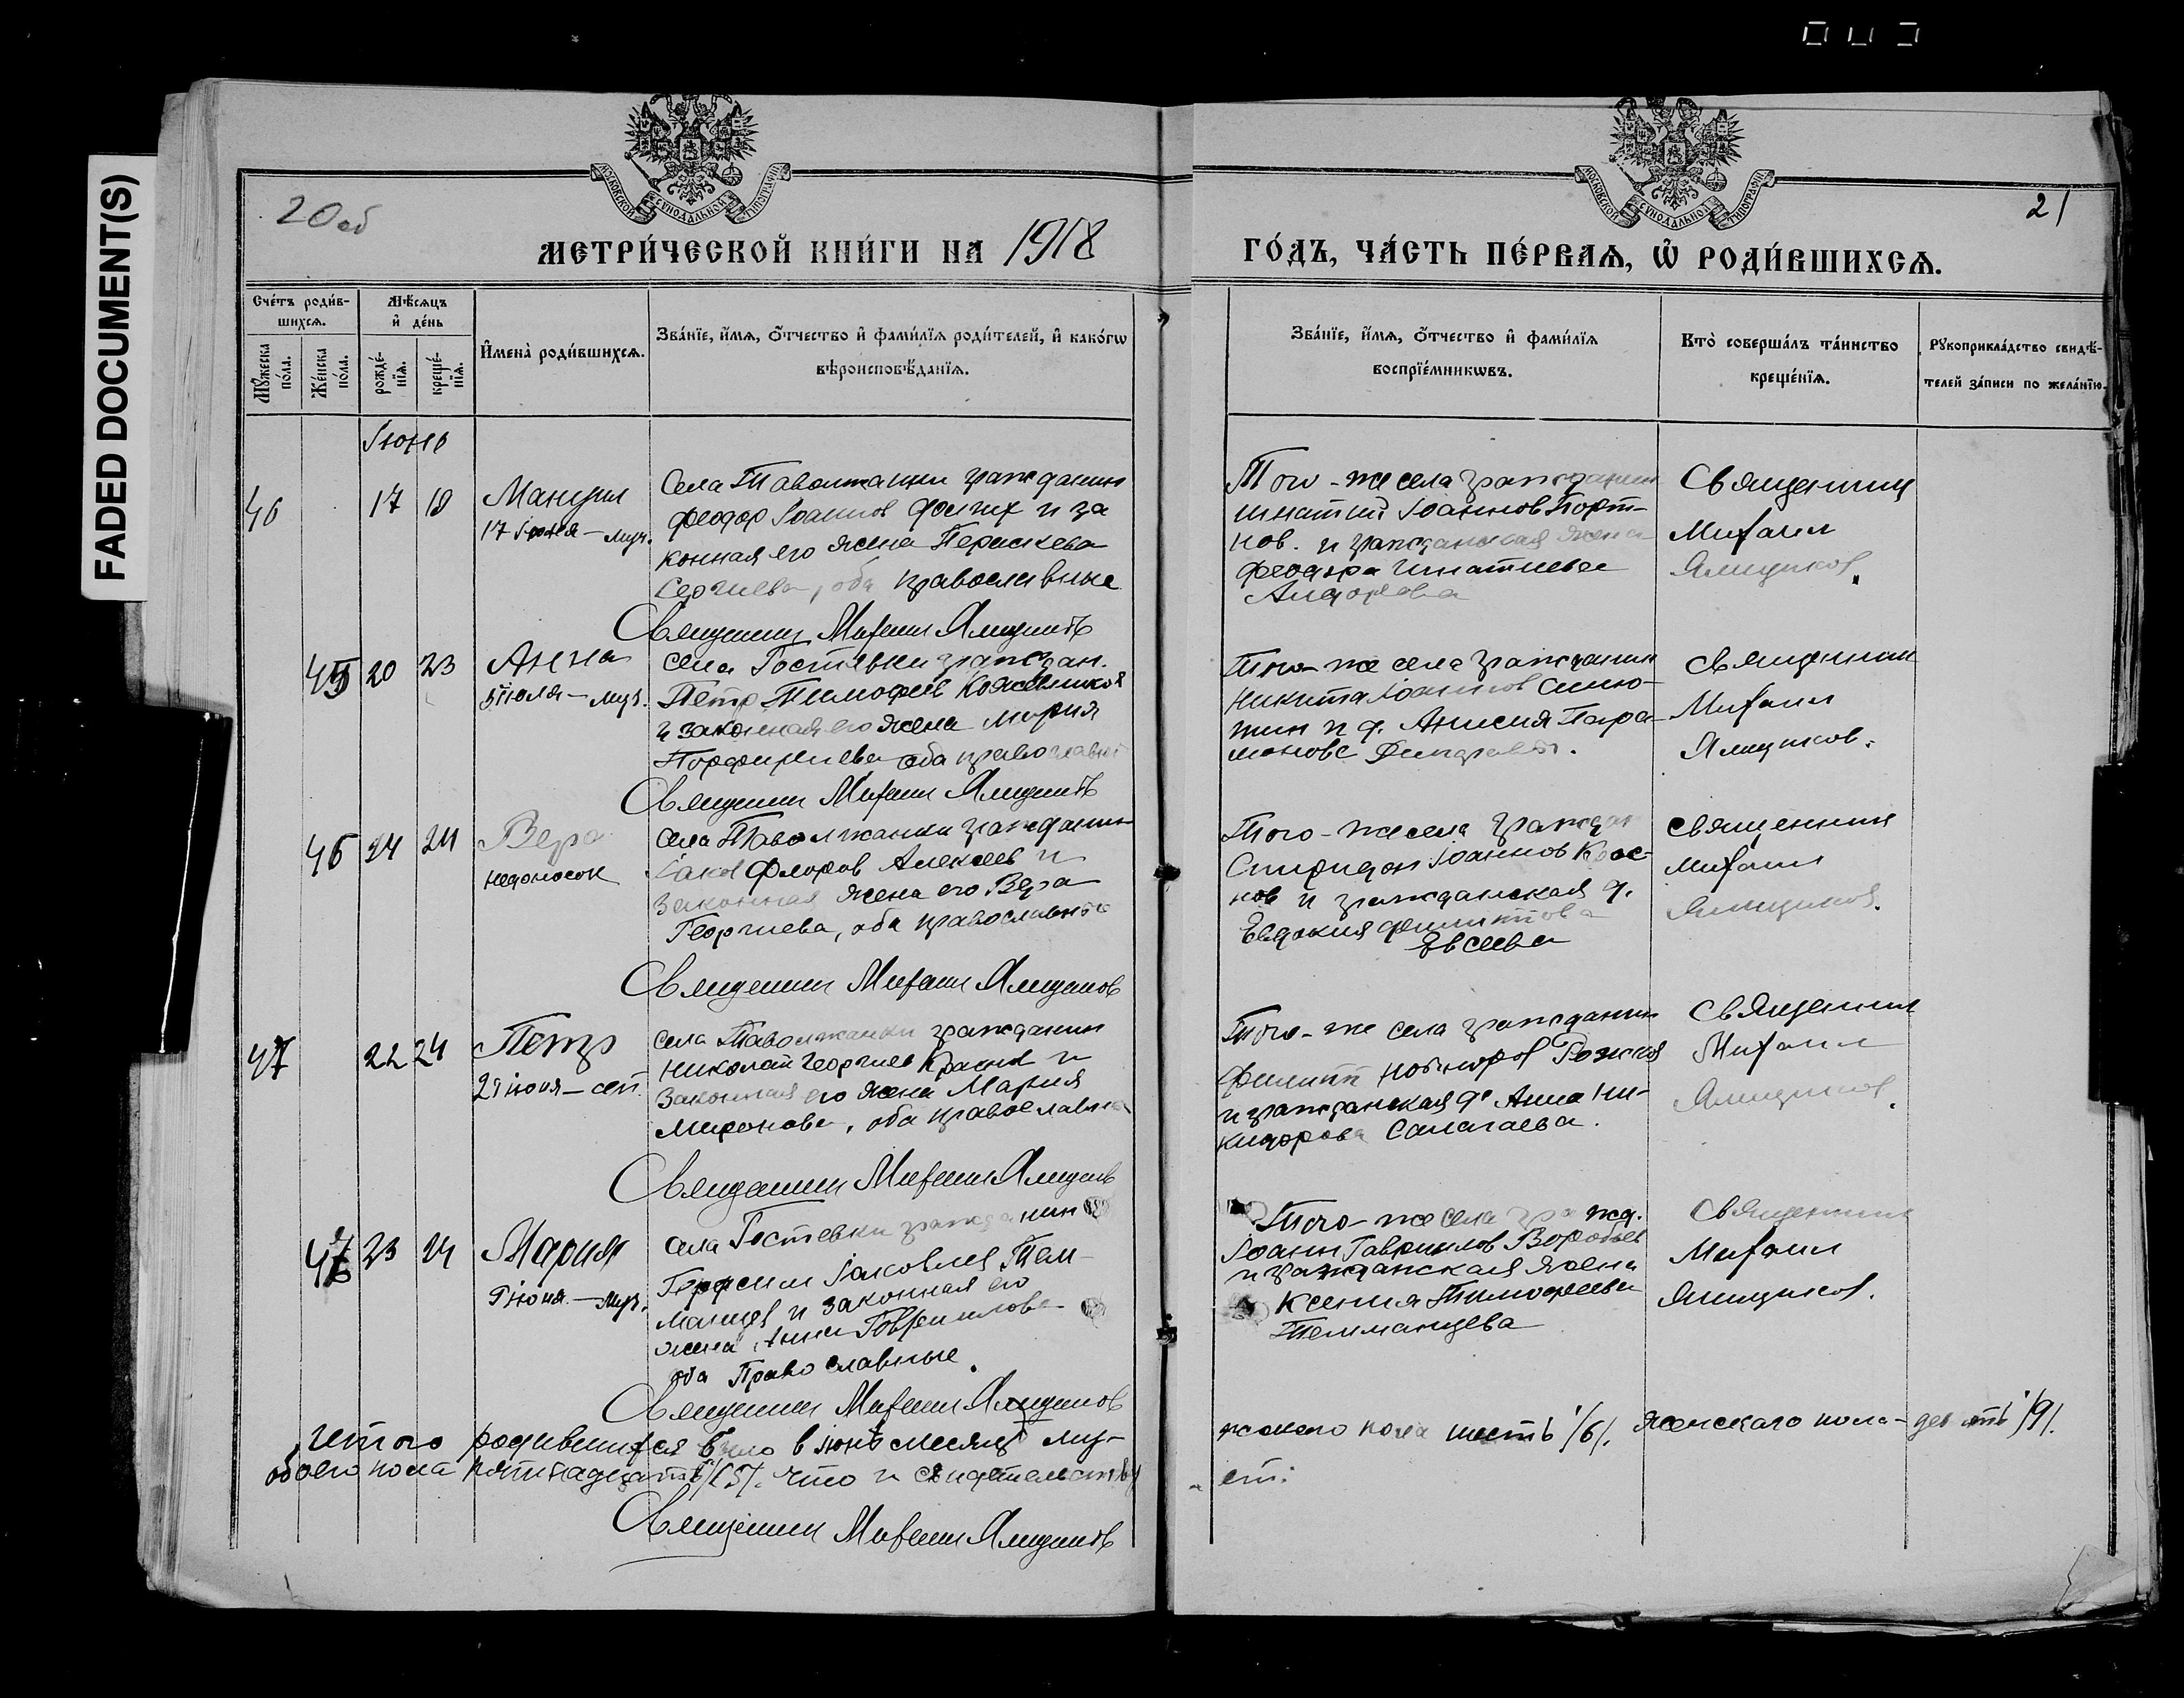 FADED DOCUMENT(S)
20 об
21
МОСКОВСКОЙ СУНОДАЛЬНОЙ ТИПОГРАФІИ
МОСКОВСКОЙ СУНОДАЛЬНОЙ ТИПОГРАФІИ
МЕТРИ́ЧЕСКОЙ КНИ́ГИ НА 1918
ГО́ДЪ, ЧА́СТЬ ПЕ́РВАѦ, Ѽ РОДИ́ВШИХСѦ.
Сче́тъ роди́в-
шихсѧ.
Мꙋ́жеска по́ла.
Же́нска по́ла.
Мѣ́сѧцъ
и҆ де́нь
рожде́-
нїѧ.
креще́-
нїѧ.
И҆мена̀ роди́вшихсѧ.
Зва́нїе, и҆́мѧ, ѻ҆́тчество и҆ фами́лїѧ роди́телей, и҆ како́гѡ
вѣроисповѣ́данїѧ.
Зва́нїе, и҆́мѧ, ѻ҆́тчество и҆ фами́лїѧ
воспрїе́мникѡвъ.
Кто̀ соверша́лъ та́инство
креще́нїѧ.
Рꙋкоприкла́дство свидѣ́-
телей за́писи по жела́нїю.
Іюнь
46 17 18
Мануил
17 Іюня – муч.
Села Таволжанки гражданин
Феодор Іоаннов Долгих и за
конная его жена Параскева
Сергиева, оба православные
Священник Михаил Ямщиков
Того-же села гражданин
Игнатий Іоаннов Порт-
нов. и гражданская жена
Феодора Игнатиева
Священник
Михаил
Ямщиков.
45 20 23
Анна
5 Июля – муч.
села Гостевки граждан.
Петр Тимофеев Кожевников
и законная его жена Мария
Порфириева оба православные
Священник Михаил Ямщиков
Того-же села гражданин
Никита Іоаннов
и д. Анисия Пара-
монова
Священник
Михаил
Ямщиков.
46 24 24
Вера
недоносок
села Таволжанки гражданин
Іаков Флоров Алексеев и
законная жена его Вера
Георгиева, оба православные
Священник Михаил Ямщиков
Того-же села граждан
Спиридон Іоаннов Крас-
нов и гражданская д.
Евдокия Филиппова
Евсеева
Священник
Михаил
Ямщиков.
47 22 24
Петр
29 июня – ап.
села Таволжанки гражданин
Николай Георгиев и
законная его жена Мария
Миронова, оба православные
Священник Михаил Ямщиков
Того-же села гражданин
Филипп
и гражданская д. Анна Ни-
кифорова Салагаева.
Священник
Михаил
Ямщиков.
47 23 24
Мария
июня – муч.
села Гостевки гражданин
Іаковлев Тел-
манцев и законная его
жена Анна Гавриилова
оба Православные.
Священник Михаил Ямщиков
Того-же села гражд.
Іоанн Гавриилов Воробьев
и гражданская жена
Ксения Тимофеева
Телманцева
Священник
Михаил
Ямщиков.
Итого родившихся было в Іюне месяце му-
жского пола шесть /6/. женскаго пола – девять /9/.
обоего пола пятнадцать /15/. что и свидетельству
ет:
Священник Михаил Ямщиков